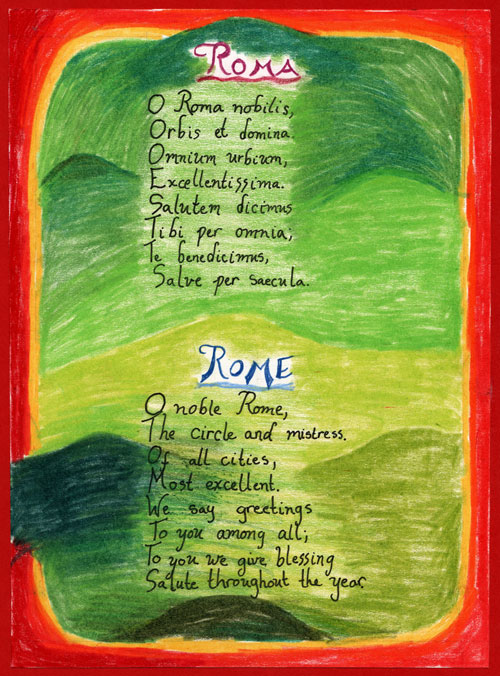 ROMA
O Roma nobilis,
Orbis et domina.
Omnium urbium,
Excellentissima.
Salutem dicimus
Tibi per omnia;
Te benedicimus,
Salve per saecula.
ROME
O noble Rome,
The circle and mistress.
Of all cities,
Most excellent.
We say greetings
To you among all;
To you we give blessing
Salute throughout the year